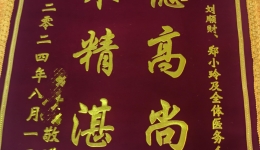 刘顺财、郑小玲及全体医务人
德高尚
术精湛
二零二四年八月一
敬赠